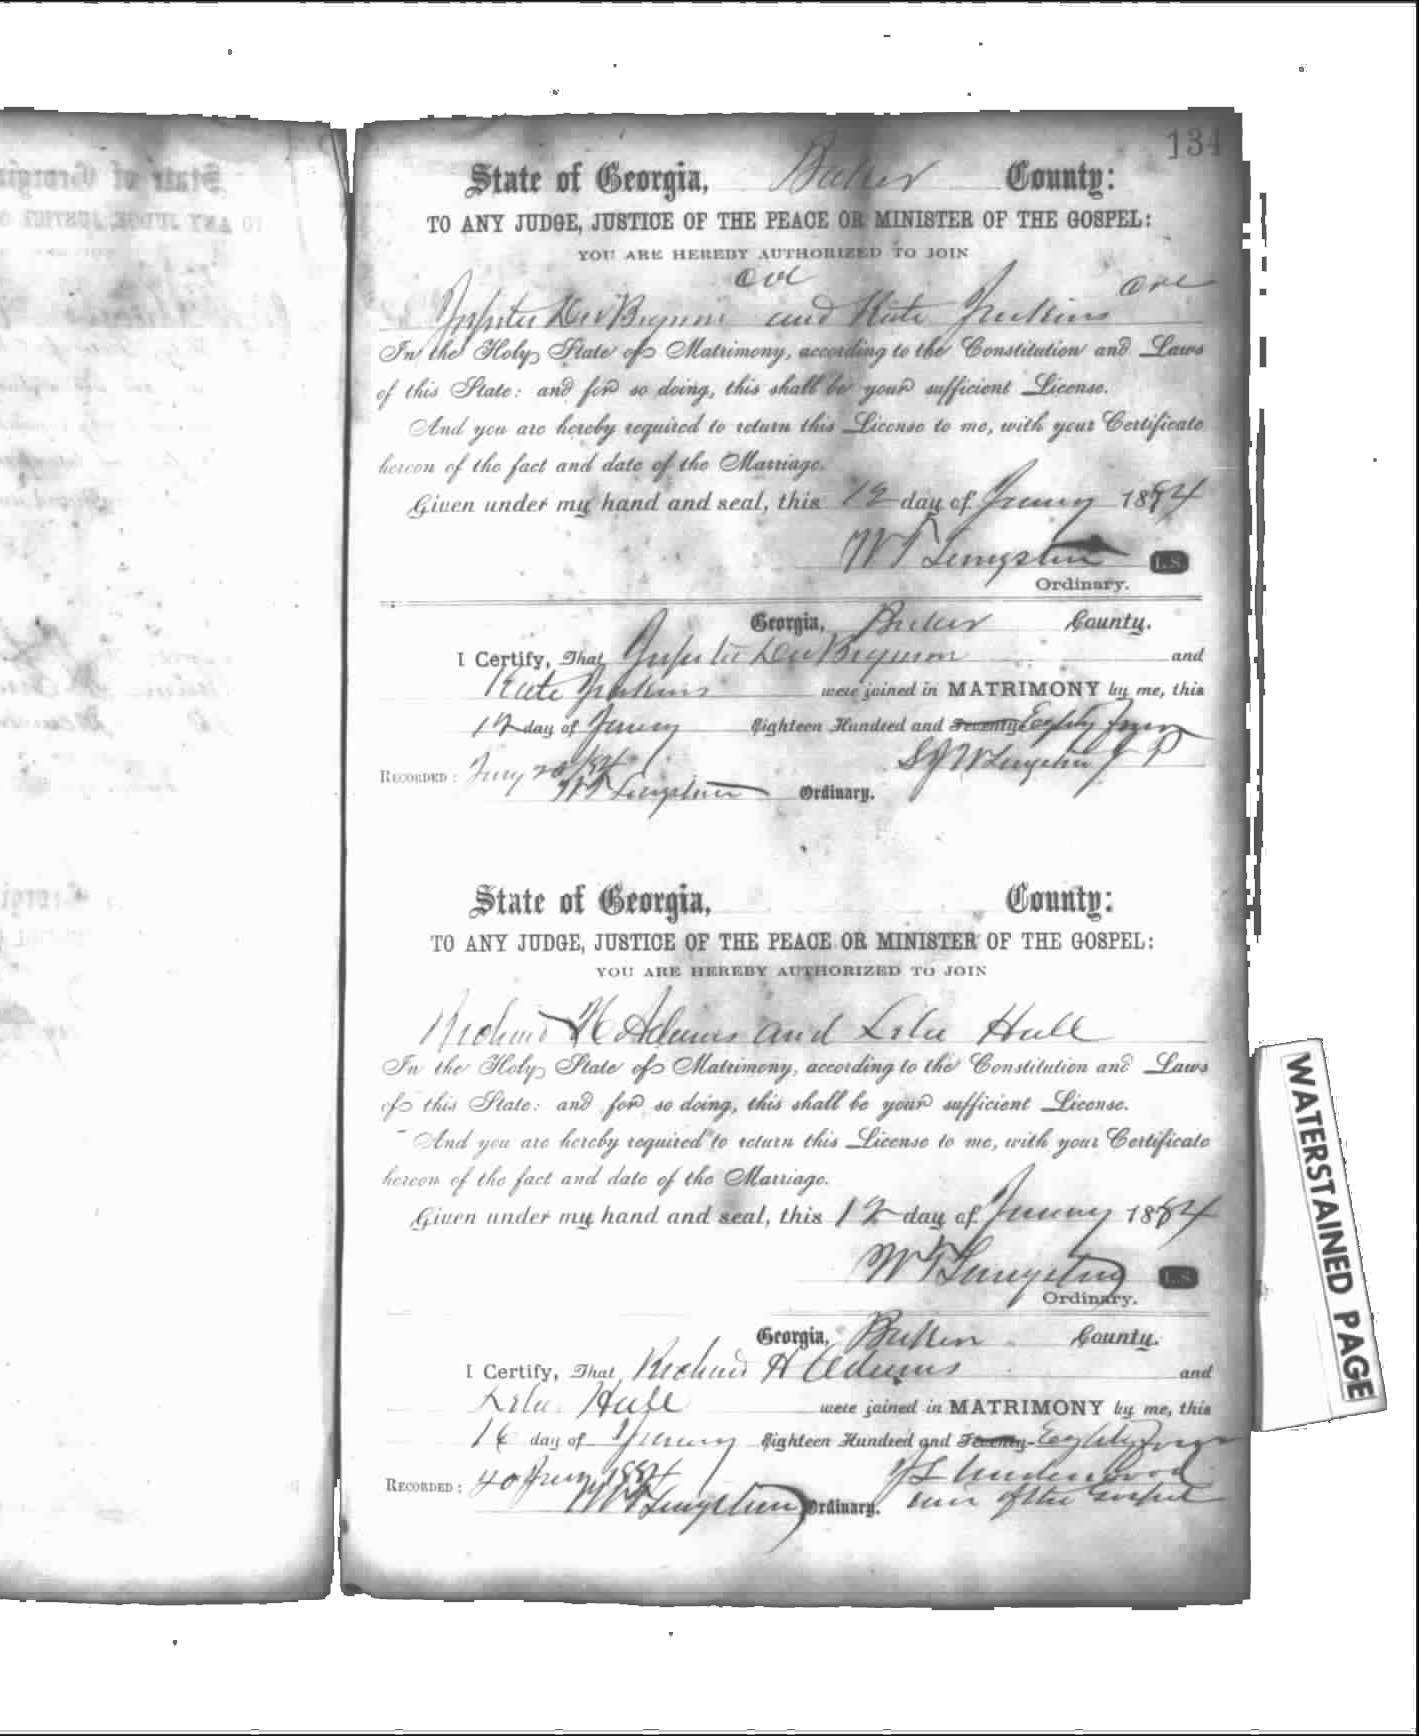 134
State of Georgia, Baker County:
TO ANY JUDGE, JUSTICE OF THE PEACE OR MINISTER OF THE GOSPEL:
YOU ARE HEREBY AUTHORIZED TO JOIN
col col
and Kate Jenkins
In the Holy State of Matrimony, according to the Constitution and Laws
of this State: and for so doing, this shall be your sufficient License.
And you are hereby required to return this License to me, with your Certificate
hereon of the fact and date of the Marriage.
Given under my hand and seal, this 12 day of 1884
W T L.S.
Ordinary.
Georgia, Baker County.
I Certify, That and
Kate Jenkins were joined in MATRIMONY by me, this
12 day of Eighteen Hundred and Seventy Eighty Four
J P
RECORDED:
W T Ordinary.
State of Georgia, County:
TO ANY JUDGE, JUSTICE OF THE PEACE OR MINISTER OF THE GOSPEL:
YOU ARE HEREBY AUTHORIZED TO JOIN
Richard H Adams and Lila Hall
In the Holy State of Matrimony, according to the Constitution and Laws
of this State: and for so doing, this shall be your sufficient License.
And you are hereby required to return this License to me, with your Certificate
hereon of the fact and date of the Marriage.
Given under my hand and seal, this 12 day of 1884
W T L.S.
Ordinary.
Georgia, Baker County.
I Certify, That Richard H Adams and
Lila Hall were joined in MATRIMONY by me, this
16 day of Eighteen Hundred and Seventy- Eighty Four
Underwood
RECORDED: 1884
W T Ordinary. of the Gospel
WATERSTAINED PAGE